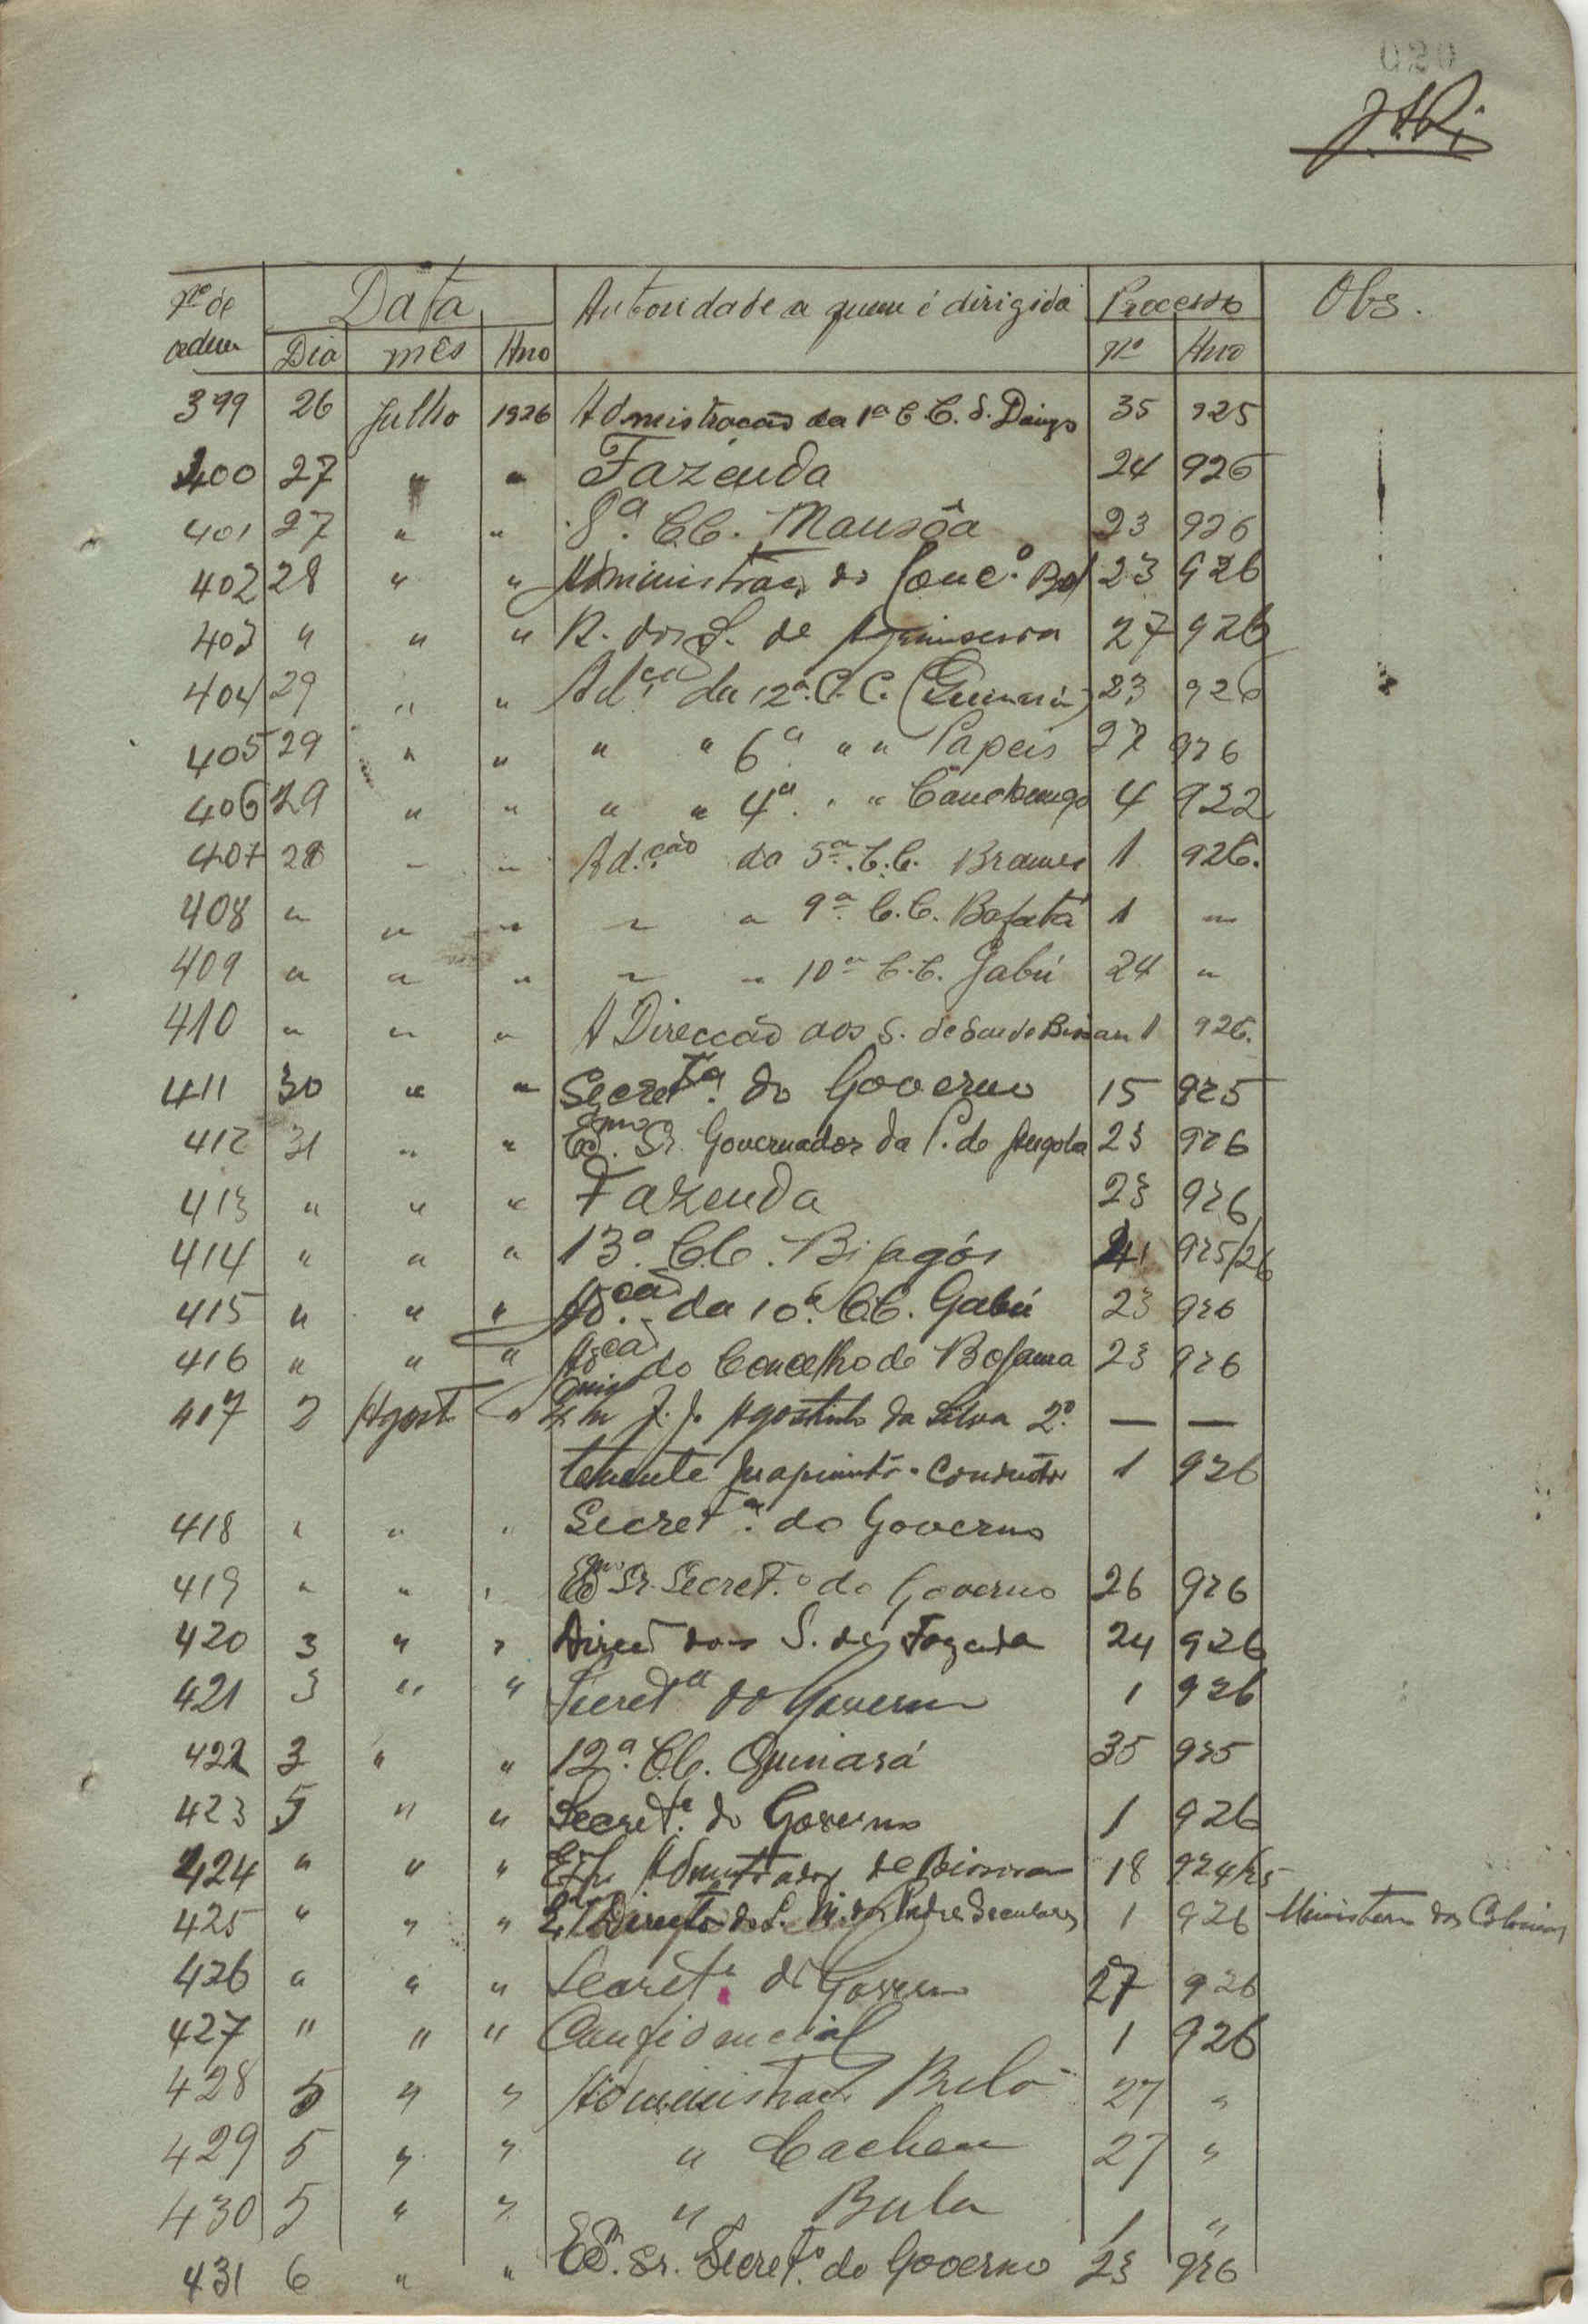 020
Nº de ordem Data Autoridade a quem é dirigida Processo Obs.
Dia mês Ano Nº Ano
399 26 Julho 1926 Admistracão da 1ª C C. S. Domgs 35 925
400 27 " " Fazenda 24 926
401 27 " " 8ª. C.C. Mansôa 23 926
402 28 " " Administraç. do Conc.º Bol 23 926
403 " " " R. dos S. de 27 926
404 29 " " Ad.cão da 12ª. C. C. (Quinará) 23 926
405 29 " " " " 6ª. " " Papeis 27 926
406 29 " " " " 4ª. " " Canchungo 4 922
407 28 " " Ad.cão da 5ª. C.C. Brames 1 926.
408 " " " " " 9ª. C.C. Bafatá 1 "
409 " " " " " 10ª C.C. Gabú 24 "
410 " " " A Direccão dos S. de Saude Bissau 1 926.
411 30 " " Secretª. do Governo 15 925
412 31 " " Exmo. Sr. Governador da P. de Angola 23 926
413 " " " Fazenda 23 926
414 " " " 13ª. C.C. Bijagós 41 925/26
415 " " " Ad.cão da 10ª. C.C. Gabú 23 926
416 " " " Ad.cão do Concelho de Bolama 23 926
417 2 Agost " J. J. Agostinho da Silva 2º. — —
tenente Conductor 1 926
418 " " " Secretª. do Governo
419 " " " Exmo Sr. Secret.º do Governo 26 926
420 3 " " Direcã dos S. de Fazenda 24 926
421 3 " " Secretª do Governo 1 926
422 3 " " 12ª. C.C. Quinará 35 925
423 5 " " Secretª. do Governo 1 926
424 " " " Admnistrador de 18 924/25
425 " " " Director do S. M. dos Padres Seculares 1 926 Ministerio das Colonias
426 " " " Secretª. do Governo 27 926
427 " " " Confidencial 1 926
428 5 " " Administraç. 27 "
429 5 " " " Cacheu 27 "
430 5 " " " Bula 1 "
431 6 " " Exmo. Sr. Secret.º do Governo 23 926